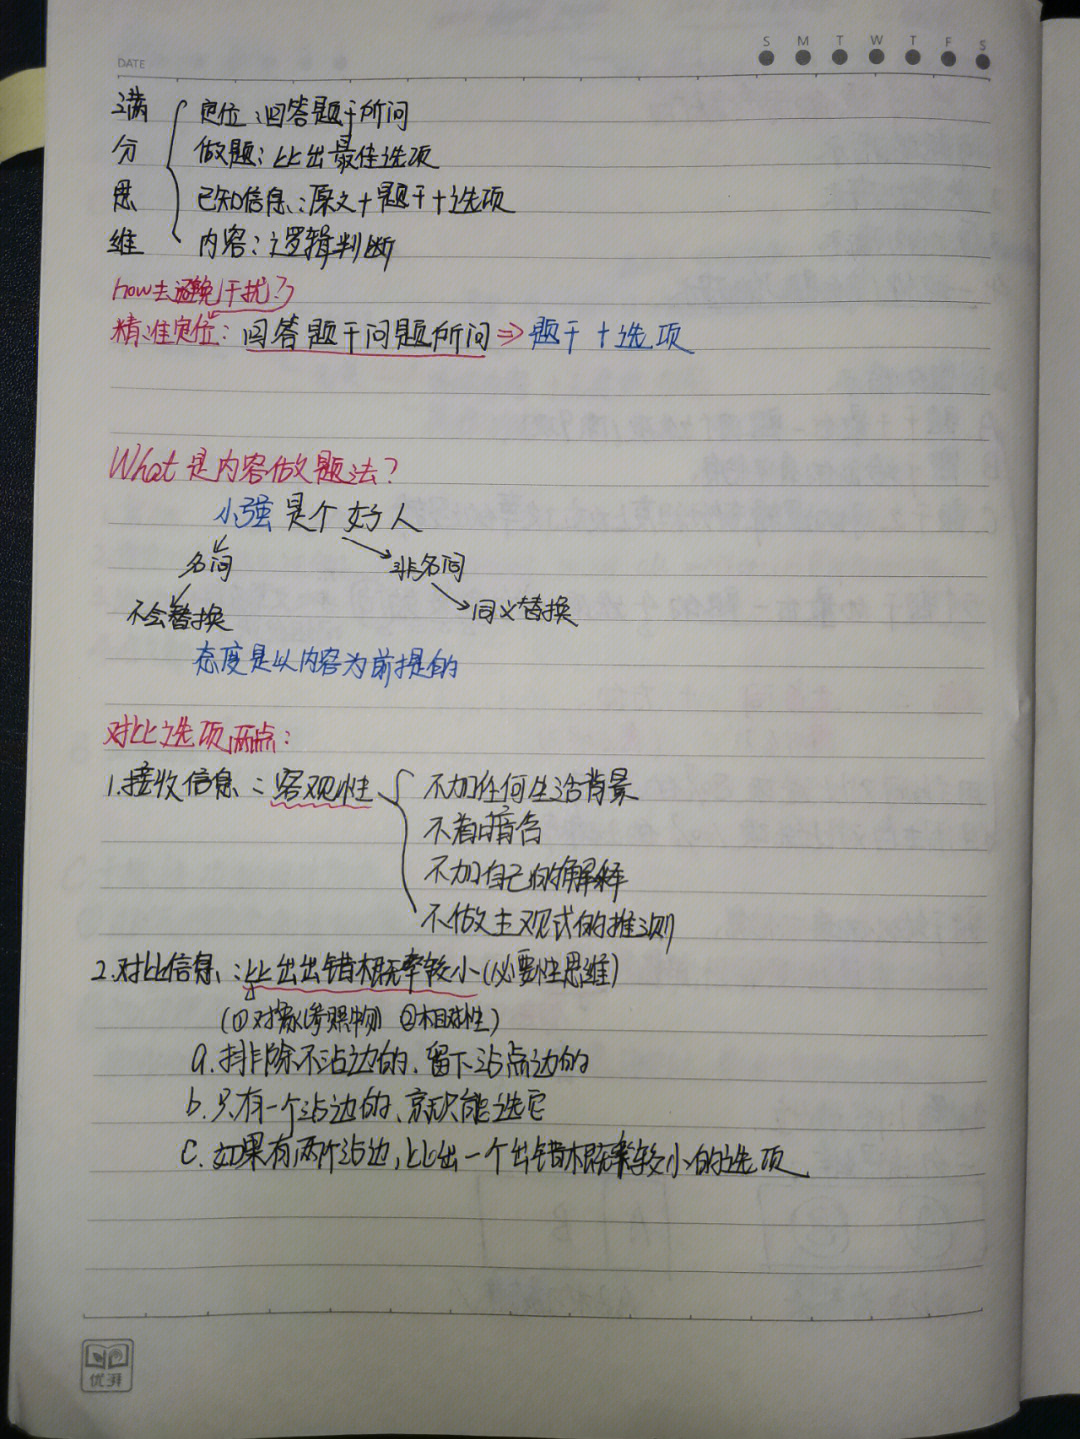 DATE
S M T W T F S
满分思维
定位:回答题干所问
做题:比出最佳选项
已知信息:原文+题干+选项
内容:逻辑判断
how去避免干扰?
精准定位:回答题干问题所问⇒题干+选项
What是内容做题法?
小强 是个 好人
名词 非名词
不会替换 同义替换
态度是以内容为前提的
对比选项两点:
1.接收信息:客观性
不加任何生活背景
不着暗含
不加自己的解释
不做主观式的推测
2.对比信息:比出出错概率较小(必要性思维)
(①对象(参照物) ②相对性)
a.排除不沾边的、留下沾点边的
b.只有一个沾边的、就只能选它
C.如果有两个沾边,比出一个出错概率较小的选项
优湃